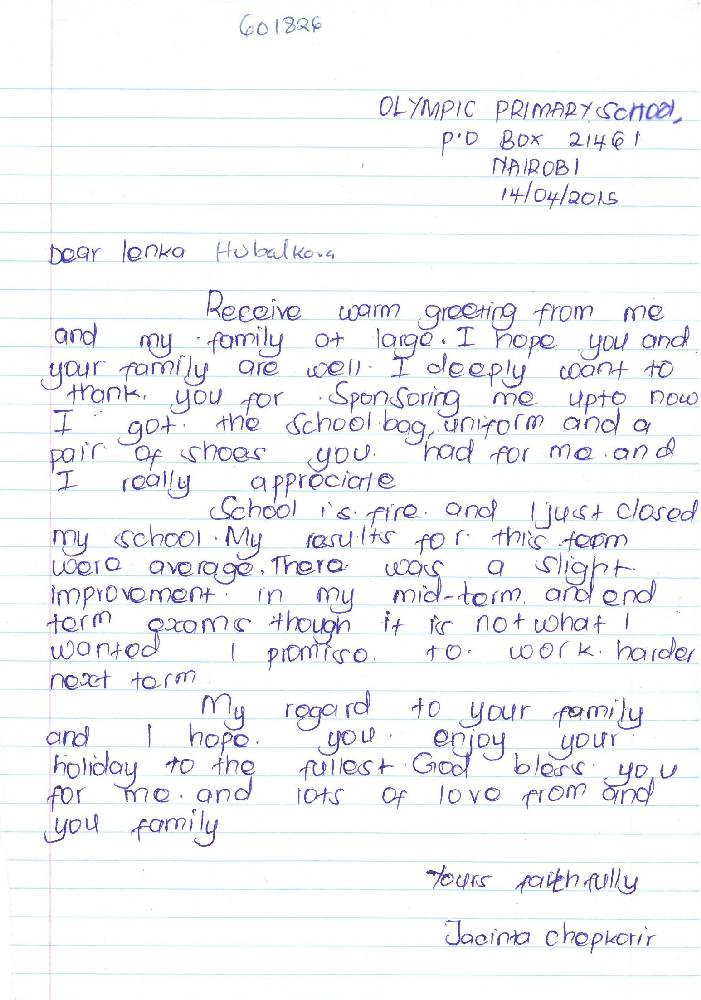 601826
OLYMPIC PRIMARY SCHOOL,
P.O BOX 21461
NAIROBI
14/04/2015
Dear lenka Hubalkova
Receive warm greeting from me
and my family at large. I hope you and
your family are well. I deeply want to
thank you for Sponsoring me upto now
I got the school bag, uniform and a
pair of shoes you had for me and
I really appreciate
School is fine and I just closed
my school. My results for this team
were average. There was a slight
improvement in my mid-term and end
term exams though it is not what I
wanted I promise to work harder
next term
My regard to your family
and I hope you enjoy your
holiday to the fullest. God bless you
for me and lots of love from and
you family
Yours faithfully
Jacinta Chepkorir